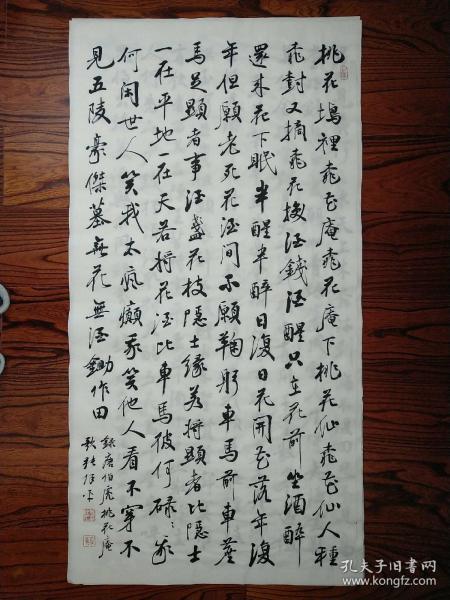 桃花塢裡桃花庵桃花庵下桃花仙桃花仙人種
桃封又摘桃花換酒錢酒醒只在花前坐酒醉
還來花下眠半醒半醉日復日花開花落年復
年但願老死花酒間不願鞠躬車馬前車塵
馬足顯者事酒盞花枝隱士緣若將顯者比隱士
一在平地一在天若將花酒比車馬彼何碌々我
何閑世人笑我太瘋癲我笑他人看不穿不
見五陵豪傑墓無花無酒鋤作田
錄唐伯虎桃花庵
歌
孔夫子旧书网